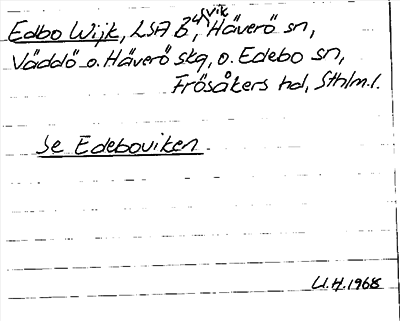 Edbo Wijk, LSA B⁴, vik Häverö sn,
Väddö o. Häverö skg, o. Edebo sn,
Frösåkers hd, Sthlm.l.
Se Edeboviken.
U.H. 1968